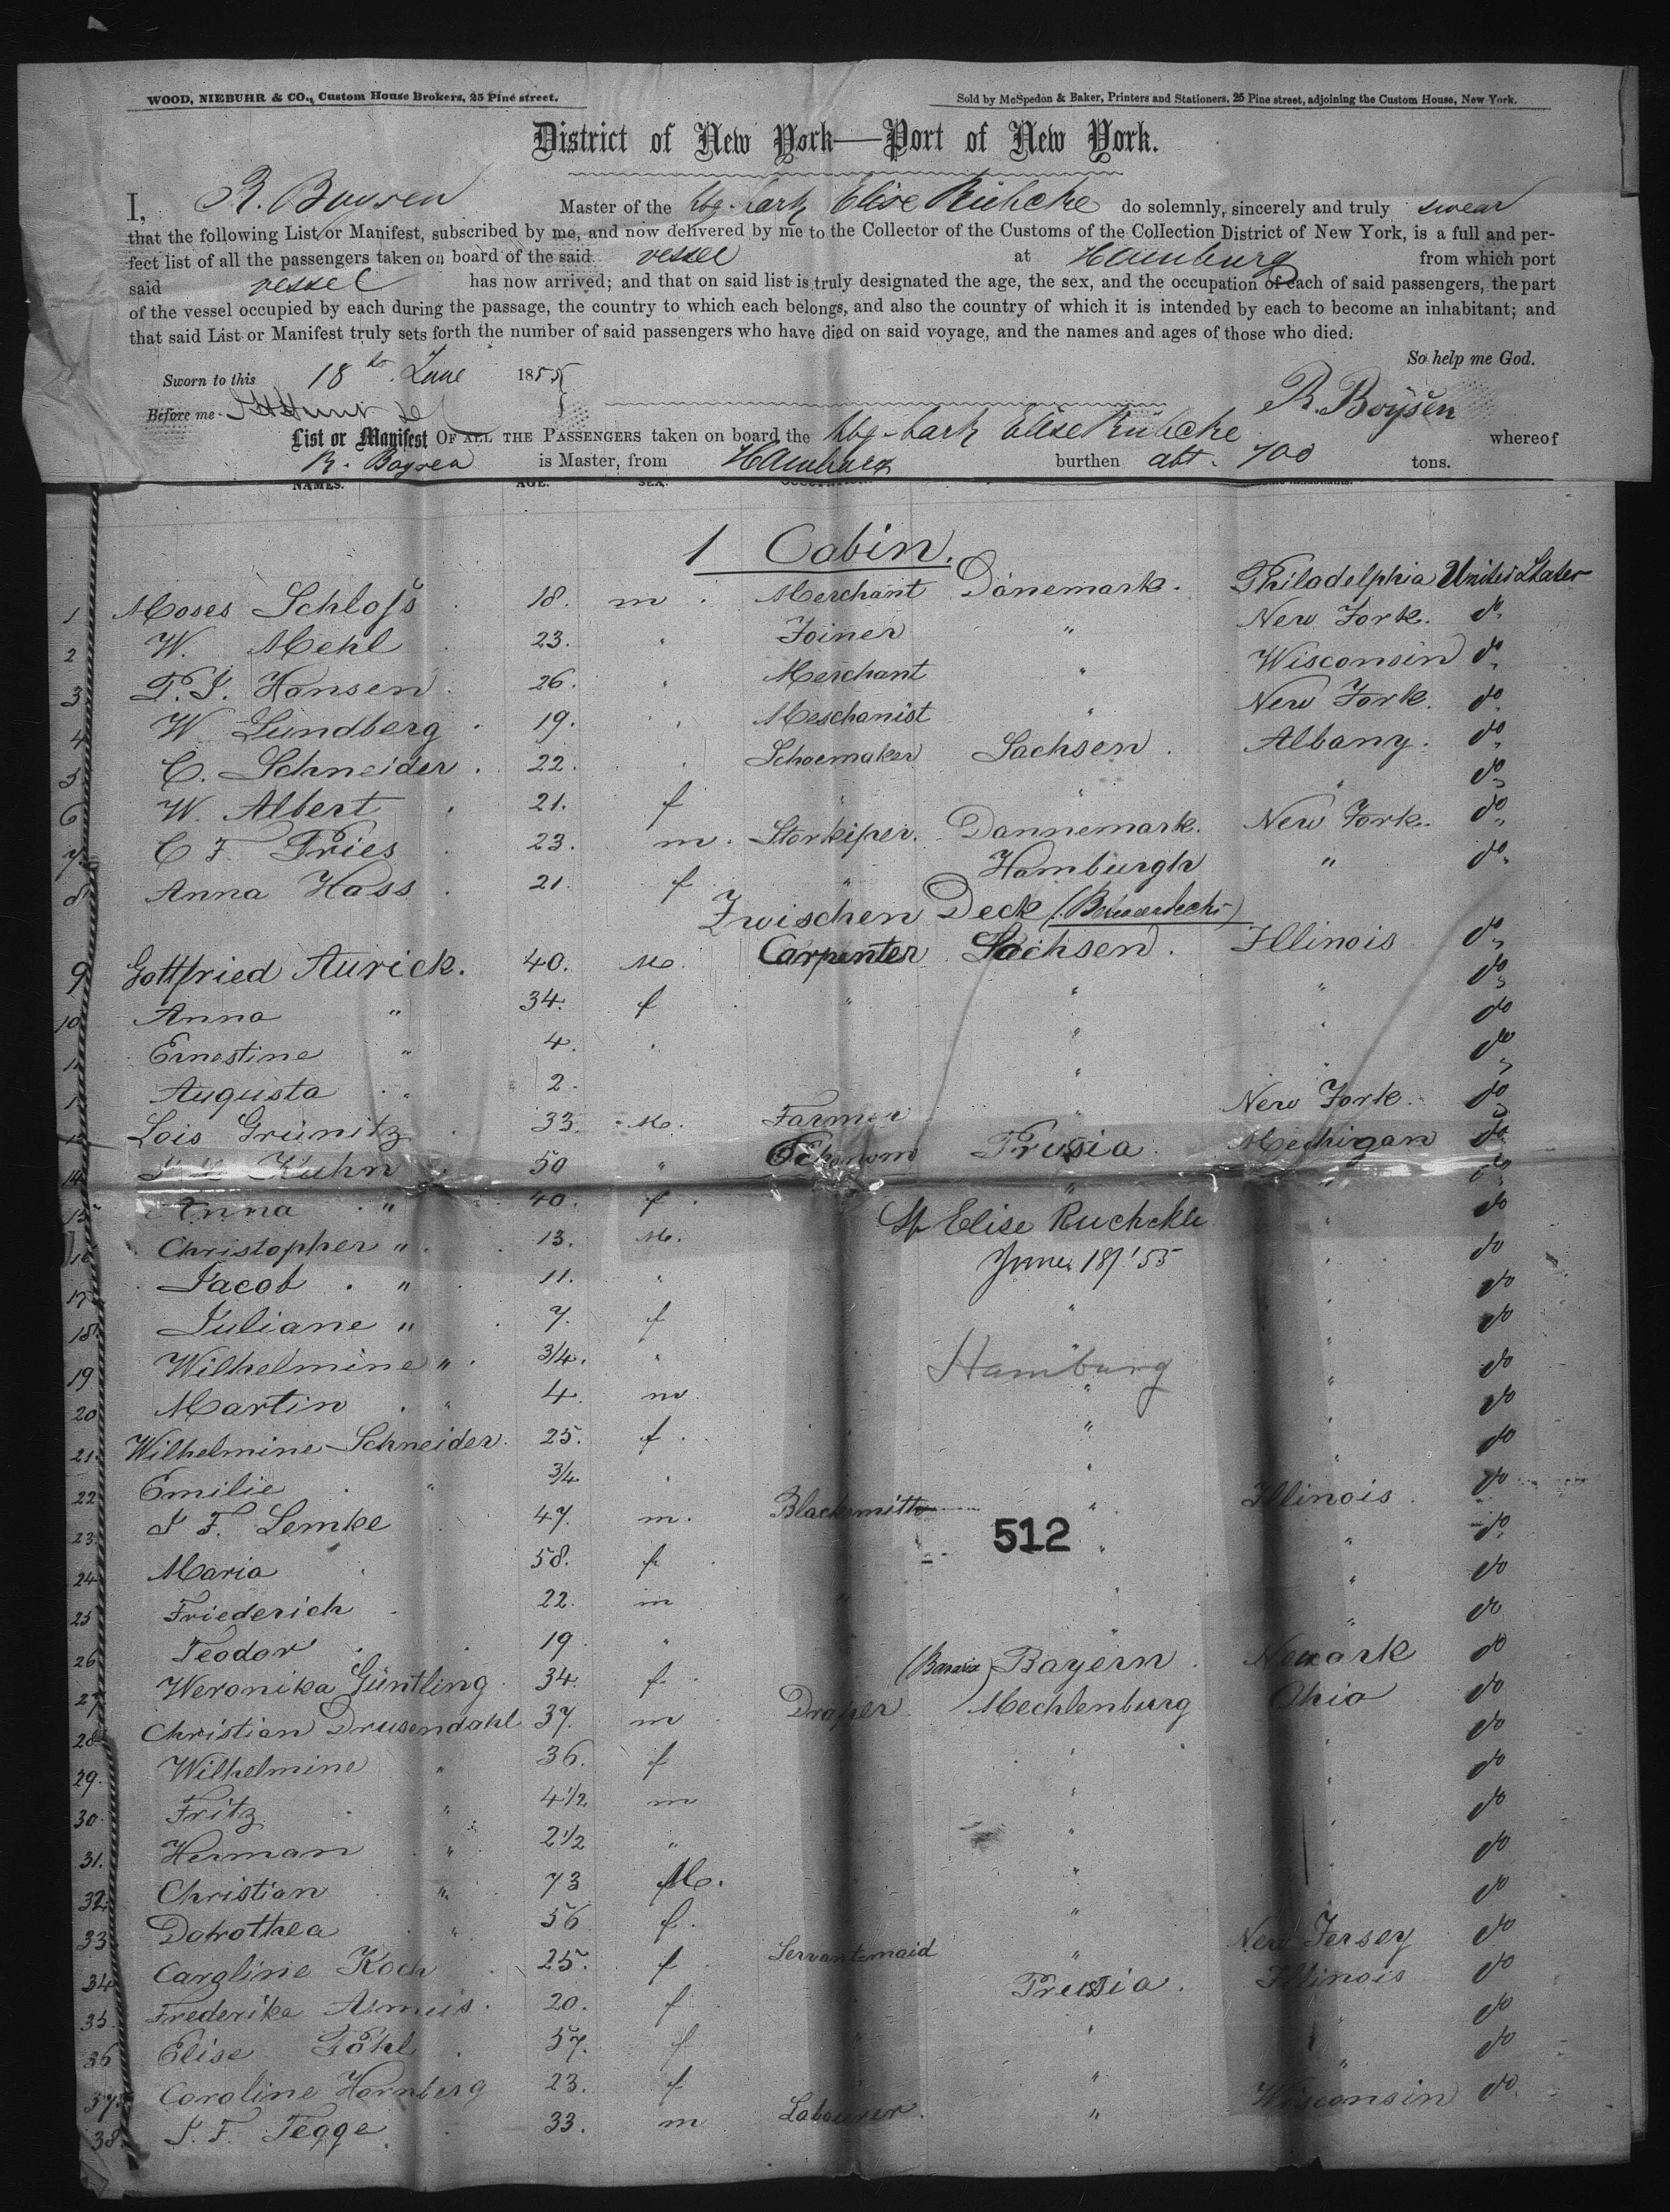 WOOD, NIEBUHR & CO., Custom House Brokers, 25 Pine street.
Sold by McSpedon & Baker, Printers and Stationers, 25 Pine street, adjoining the Custom House, New York.
District of New York—Port of New York.
I, R. Boysen Master of the hbg. bark Elise Rübcke do solemnly, sincerely and truly swear
that the following List or Manifest, subscribed by me, and now delivered by me to the Collector of the Customs of the Collection District of New York, is a full and per-
fect list of all the passengers taken on board of the said vessel at Hamburg from which port
said vessel has now arrived; and that on said list is truly designated the age, the sex, and the occupation of each of said passengers, the part
of the vessel occupied by each during the passage, the country to which each belongs, and also the country of which it is intended by each to become an inhabitant; and
that said List or Manifest truly sets forth the number of said passengers who have died on said voyage, and the names and ages of those who died.
So help me God.
Sworn to this 18th June 1855
R. Boysen
Before me
List or Manifest OF ALL THE PASSENGERS taken on board the hbg-bark Elise Rübcke whereof
R. Boysen is Master, from Hamburg burthen abt. 700 tons.
NAMES. AGE. SEX.
1 Cabin.
1 Moses Schloss 18. m. Merchant Dänemark. Philadelphia United States
2 W. Mehl 23. " Joiner " New York. do
3 P. J. Hansen 26. " Merchant " Wisconsin do
4 W. Lundberg 19. " Meschanist " New York. do
5 C. Schneider 22. " Schoemaker Sachsen. Albany. do
6 W. Albert 21. f " " " do
7 C F. Fries 23. m. Storkiper. Dannemark. New York. do
8 Anna Hass 21. f " Hamburgh " do
Zwischen Deck (Betweendecks)
9 Gottfried Aurick. 40. M. Carpenter Sachsen. Illinois do
10 Anna " 34. f " " " do
11 Ernestine " 4. " " " do
1 Augusta " 2. " " do
13 Lois Grünitz 33. M. Farmer " New York. do
14 Kuhn 50 " Prusia Mechigan do
15 Anna " 40. f. " " do
Sp Elise Ruchckle
16 Christopher " 13. M. " do
June 18/'55
17 Jacob " 11. " " do
18 Juliane " 7. f " " do
19 Wilhelmine " 3/4. " " do
Hamburg
20 Martin " 4. m " " do
21 Wilhelmine Schneider. 25. f. " " do
22 Emilie " 3/4. " " " do
23 J F. Lemke 47. m. Blacksmith " Illinois. do
512
24 Maria 58. f. " " do
25 Friederich 22. m " " " do
26 Teodor 19. " " " do
27 Weronika Güntling 34. f. (Bavaria) Bayern. Newark do
28 Christian Drusendahl 37. m Draper Mechlenburg Ohio do
29. Wilhelmine " 36. f " " do
30. Fritz " 4 1/2 m " " do
31. Herman " 2 1/2 " " " do
32 Christian " 73 M. " do
33 Dorothea " 56 f. " do
34 Caroline Koch 25. f. Servantmaid " New Jersey do
35. Frederika Asmus. 20. f. Prusia. Illinois do
36 Elise Pöhl 57. f " " do
37. Caroline Hornberg 23. f " " do
38 J. F. Tegge 33. m Labourer. " Wisconsin do